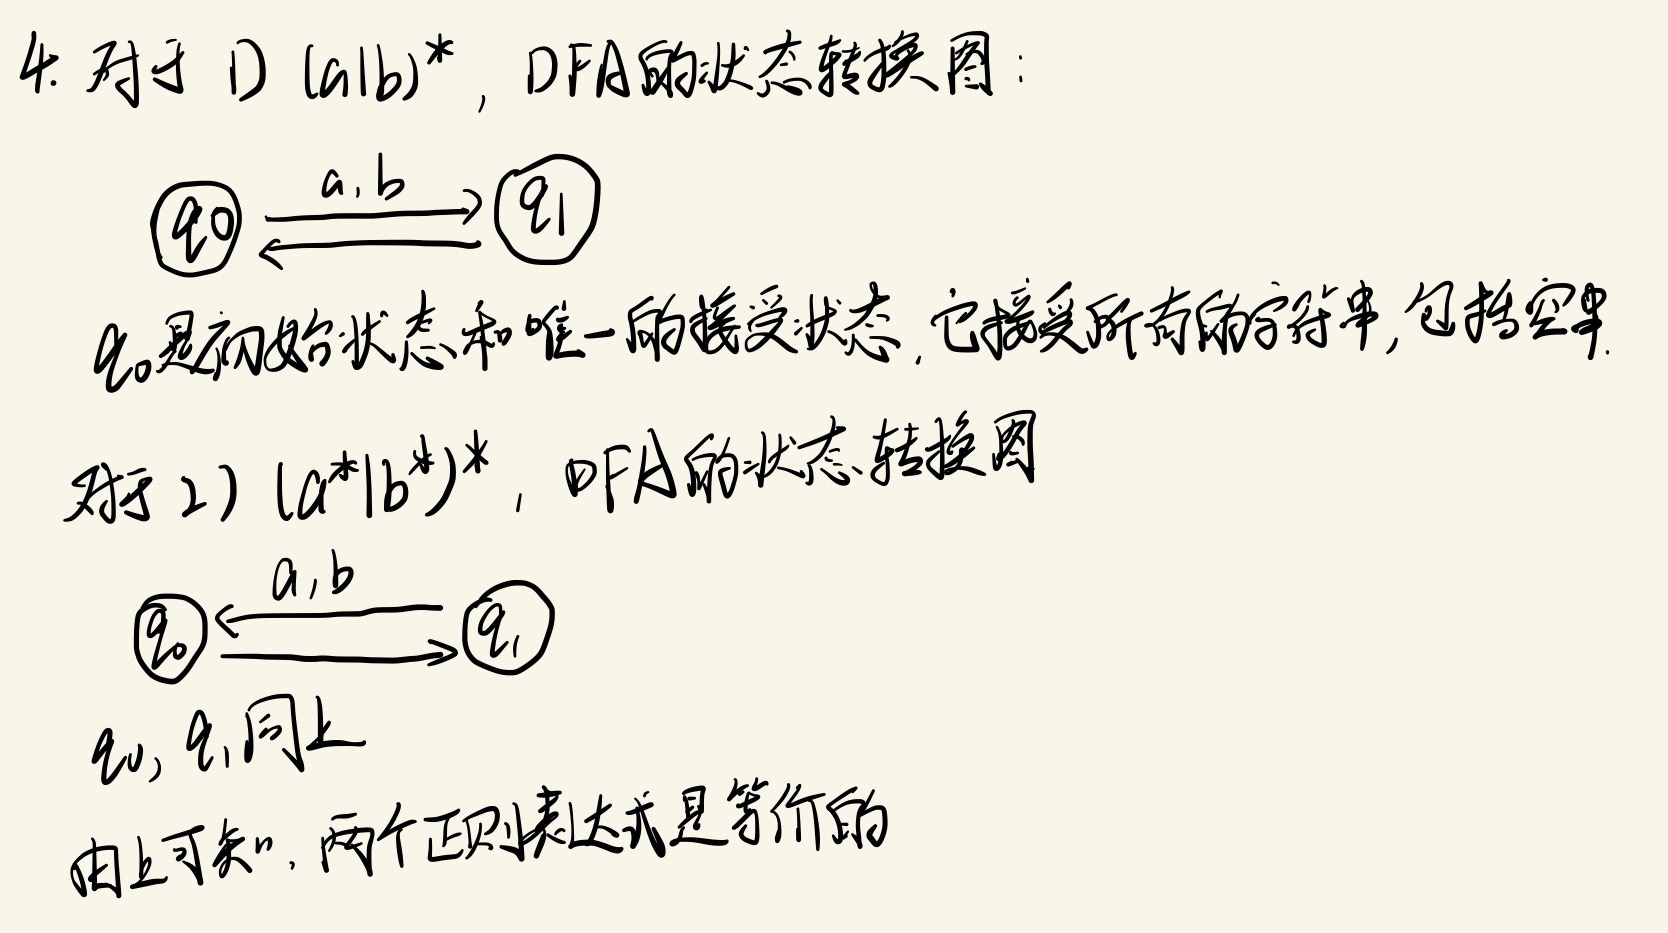 4. 对于 1) (a|b)*, DFA的状态转换图:
a, b
q0 q1
q0是初始状态和唯一的接受状态,它接受所有的字符串,包括空串.
对于 2) (a*|b*)*, DFA的状态转换图
a, b
q0 q1
q0, q1同上
由上可知, 两个正则表达式是等价的